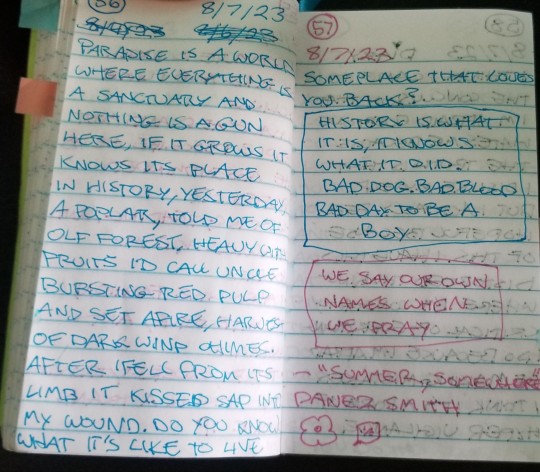 56
8/7/23
8/9/23 8/6/23
PARADISE IS A WORLD
WHERE EVERYTHING IS
A SANCTUARY AND
NOTHING IS A GUN
HERE, IF IT GROWS IT
KNOWS ITS PLACE
IN HISTORY, YESTERDAY,
A POPLAR, TOLD ME OF
OLF FOREST, HEAVY WITH
FRUITS I'D CALL UNCLE
BURSTING RED PULP
AND SET AFIRE, HARVEST
OF DARK WIND CHIMES.
AFTER I FELL FROM ITS
LIMB IT KISSED SAP INTO
MY WOUND. DO YOU KNOW
WHAT IT'S LIKE TO LIVE
57
8/7/23
SOMEPLACE THAT LOVES
YOU BACK?
HISTORY IS WHAT
IT IS, IT KNOWS
WHAT IT DID.
BAD DOG. BAD BLOOD
BAD DAY TO BE A
BOY
WE SAY OUR OWN
NAMES WHEN
WE PRAY
- "SUMMER, SOMEWHERE"
DANEZ SMITH